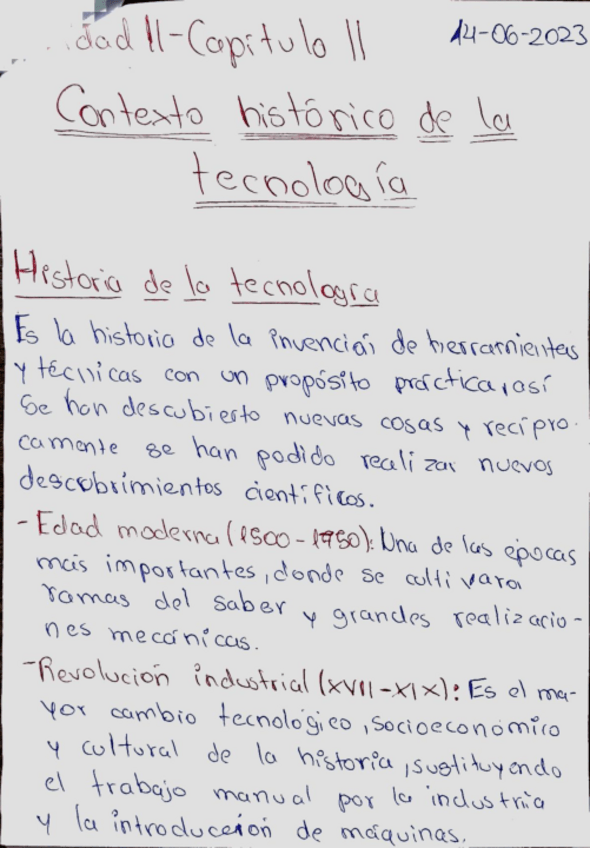 dad II-Capitulo II
14-06-2023
Contexto histórico de la
tecnología
Historia de la tecnología
Es la historia de la invención de herramientas
y técnicas con un propósito práctica, así
Se han descubierto nuevas cosas y recípro-
camente se han podido realizar nuevos
descubrimientos científicos.
- Edad moderna (1500-1950): Una de las épocas
más importantes, donde se cultivara
ramas del saber y grandes realizacio-
nes mecánicas.
- Revolución industrial (XVII-XIX): Es el ma-
yor cambio tecnológico, socioeconómico
y cultural de la historia, sustituyendo
el trabajo manual por la industria
y la introducción de máquinas.